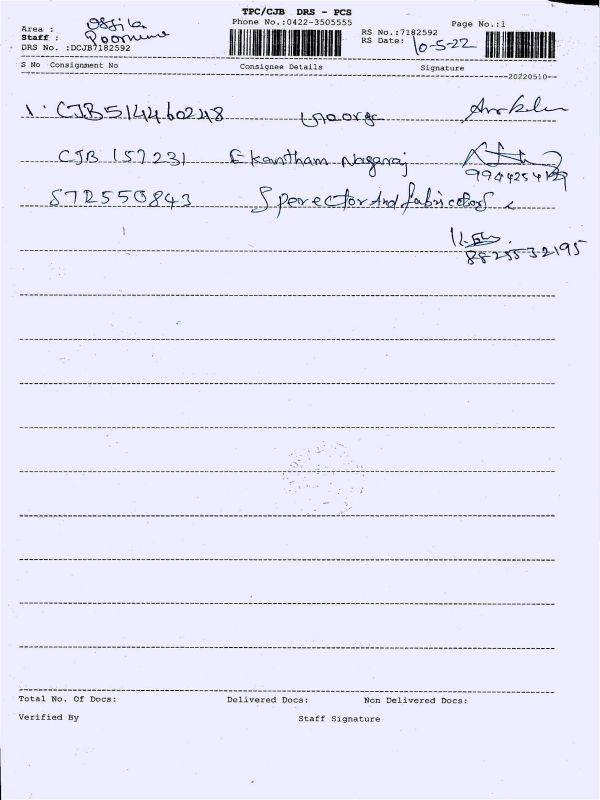 TPC/CJB DRS - PCS
Phone No.:0422-3505555
Page No.:1
Area :
Staff :
DRS No. :DCJB7182592
RS No.:7182592
RS Date: 10-5-22
S No Consignment No Consignee Details Signature
20220510
1. CJB514460248 George
CJB 157231 Ekantham Nagaraj
9944254129
572550843 S perector And fabricators
8825532195
Total No. Of Docs: Delivered Docs: Non Delivered Docs:
Verified By Staff Signature